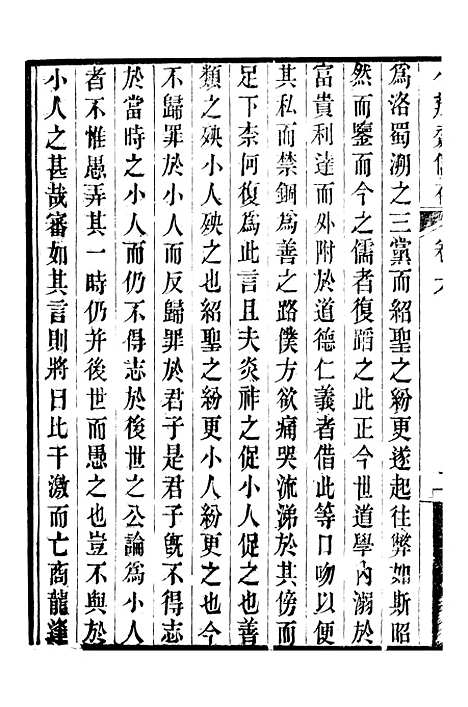 爲洛蜀溯之三黨而紹聖之紛更遂起往弊如斯昭
然而鑒而今之儒者復蹈之此正今世道學內溺於
富貴利達而外附於道德仁義者借此等口吻以便
其私而禁錮爲善之路僕方欲痛哭流涕於其傍而
足下柰何復爲此言且夫炎祚之促小人促之也善
類之殃小人殃之也紹聖之紛更小人紛更之也今
不歸罪於小人而反歸罪於君子是君子旣不得志
於當時之小人而仍不得志於後世之公論爲小人
者不惟愚弄其一時仍并後世而愚之也豈不與於
小人之甚哉審如其言則將曰比干激而亡商龍逢